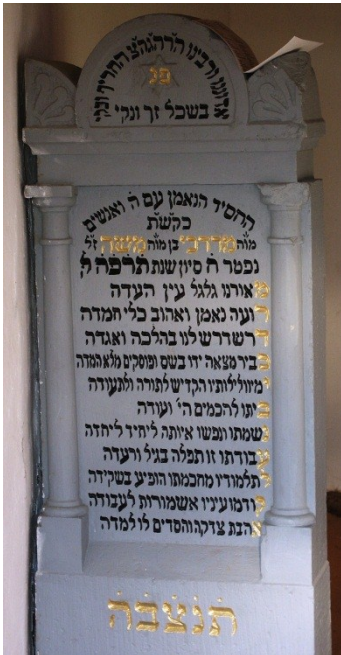 אדונינו ורבינו הרה"ג הצ' החריף ונקי
פנ
בשכל זך ונקי
החסיד הנאמן עם ה' ואנשים
כקש"ת
מו"ה מרדכי בן מו"ה משה ז"ל
נפטר ה' סיון שנת תרפה ל'
מאורנו גלגל עין העדה
רועה נאמן ואהוב כלי חמדה
דרש דרש לנו בהלכה ואגדה
כביר מצאה ידו בשס ופוסקים מלא חמדה
ימיו ולילותיו הקדיש לתורה ולתעודה
ביתו לחכמים הי' ועודה
נשמתו ונפשו איותה ליחיד ליחדה
עבודתו זו תפלה בגיל ורעדה
תלמודיו מחכמתו הופיע בשקידה
ודמו עיניו אשמורות לעבודה
אהבת צדקה וחסדים לו למדה
תנצבה